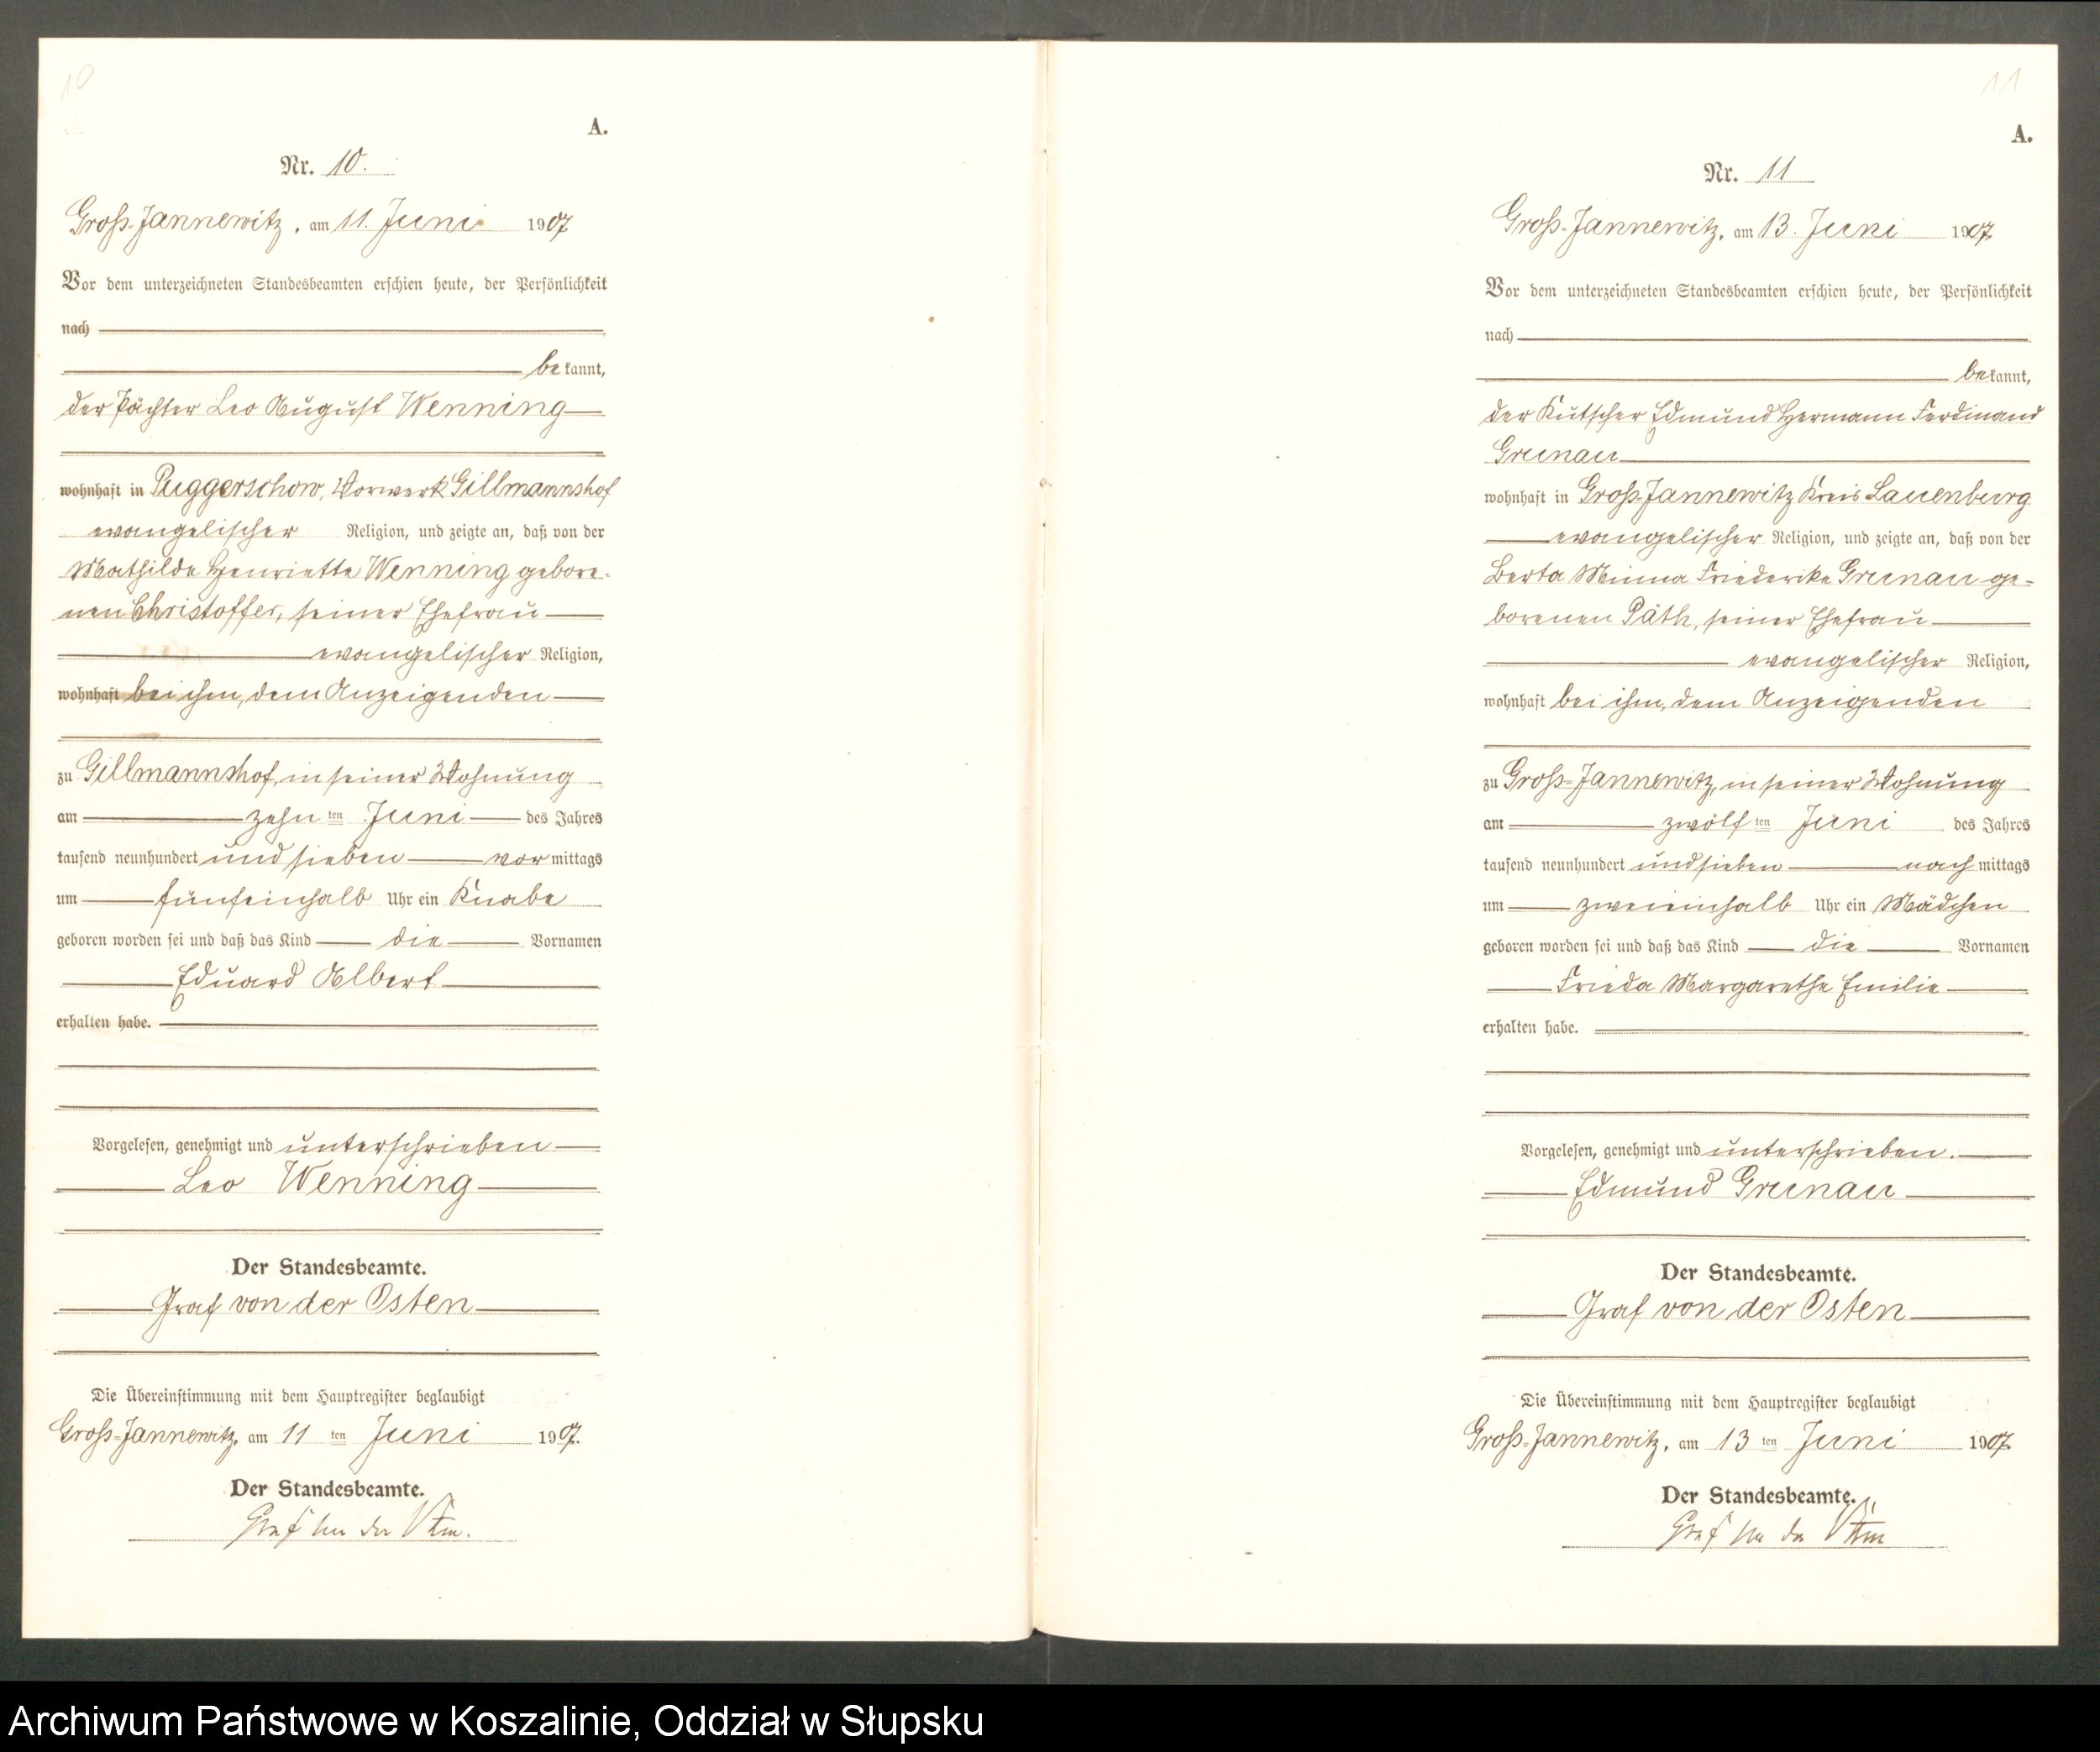 10
A.
Nr. 10.
Groß-Jannewitz, am 11. Juni 1907
Vor dem unterzeichneten Standesbeamten erschien heute, der Persönlichkeit
nach
bekannt,
der Pächter Leo August Wenning
wohnhaft in Puggerschow, Vorwerk Gillmannshof
evangelischer Religion, und zeigte an, daß von der
Mathilde Henriette Wenning gebore-
nen Christoffer, seiner Ehefrau
evangelischer Religion,
wohnhaft bei ihm, dem Anzeigenden
zu Gillmannshof, in seiner Wohnung
am zehnten Juni des Jahres
tausend neunhundert und sieben vormittags
um fünfeinhalb Uhr ein Knabe
geboren worden sei und daß das Kind die Vornamen
Eduard Albert
erhalten habe.
Vorgelesen, genehmigt und unterschrieben
Leo Wenning
Der Standesbeamte.
Graf von der Osten
Die Übereinstimmung mit dem Hauptregister beglaubigt
Groß-Jannewitz, am 11ten Juni 1907.
Der Standesbeamte.
Graf von der Osten.
11
A.
Nr. 11
Groß-Jannewitz, am 13. Juni 1907
Vor dem unterzeichneten Standesbeamten erschien heute, der Persönlichkeit
nach
bekannt,
der Kutscher Edmund Hermann Ferdinand
Grunau
wohnhaft in Groß-Jannewitz Kreis Lauenburg
evangelischer Religion, und zeigte an, daß von der
Berta Minna Friederike Grunau ge-
borenen Päth, seiner Ehefrau
evangelischer Religion,
wohnhaft bei ihm, dem Anzeigenden
zu Groß-Jannewitz, in seiner Wohnung
am zwölften Juni des Jahres
tausend neunhundert und sieben nachmittags
um zweieinhalb Uhr ein Mädchen
geboren worden sei und daß das Kind die Vornamen
Frieda Margarethe Emilie
erhalten habe.
Vorgelesen, genehmigt und unterschrieben.
Edmund Grunau
Der Standesbeamte.
Graf von der Osten
Die Übereinstimmung mit dem Hauptregister beglaubigt
Groß-Jannewitz, am 13ten Juni 1907
Der Standesbeamte.
Graf von der Osten
Archiwum Państwowe w Koszalinie, Oddział w Słupsku